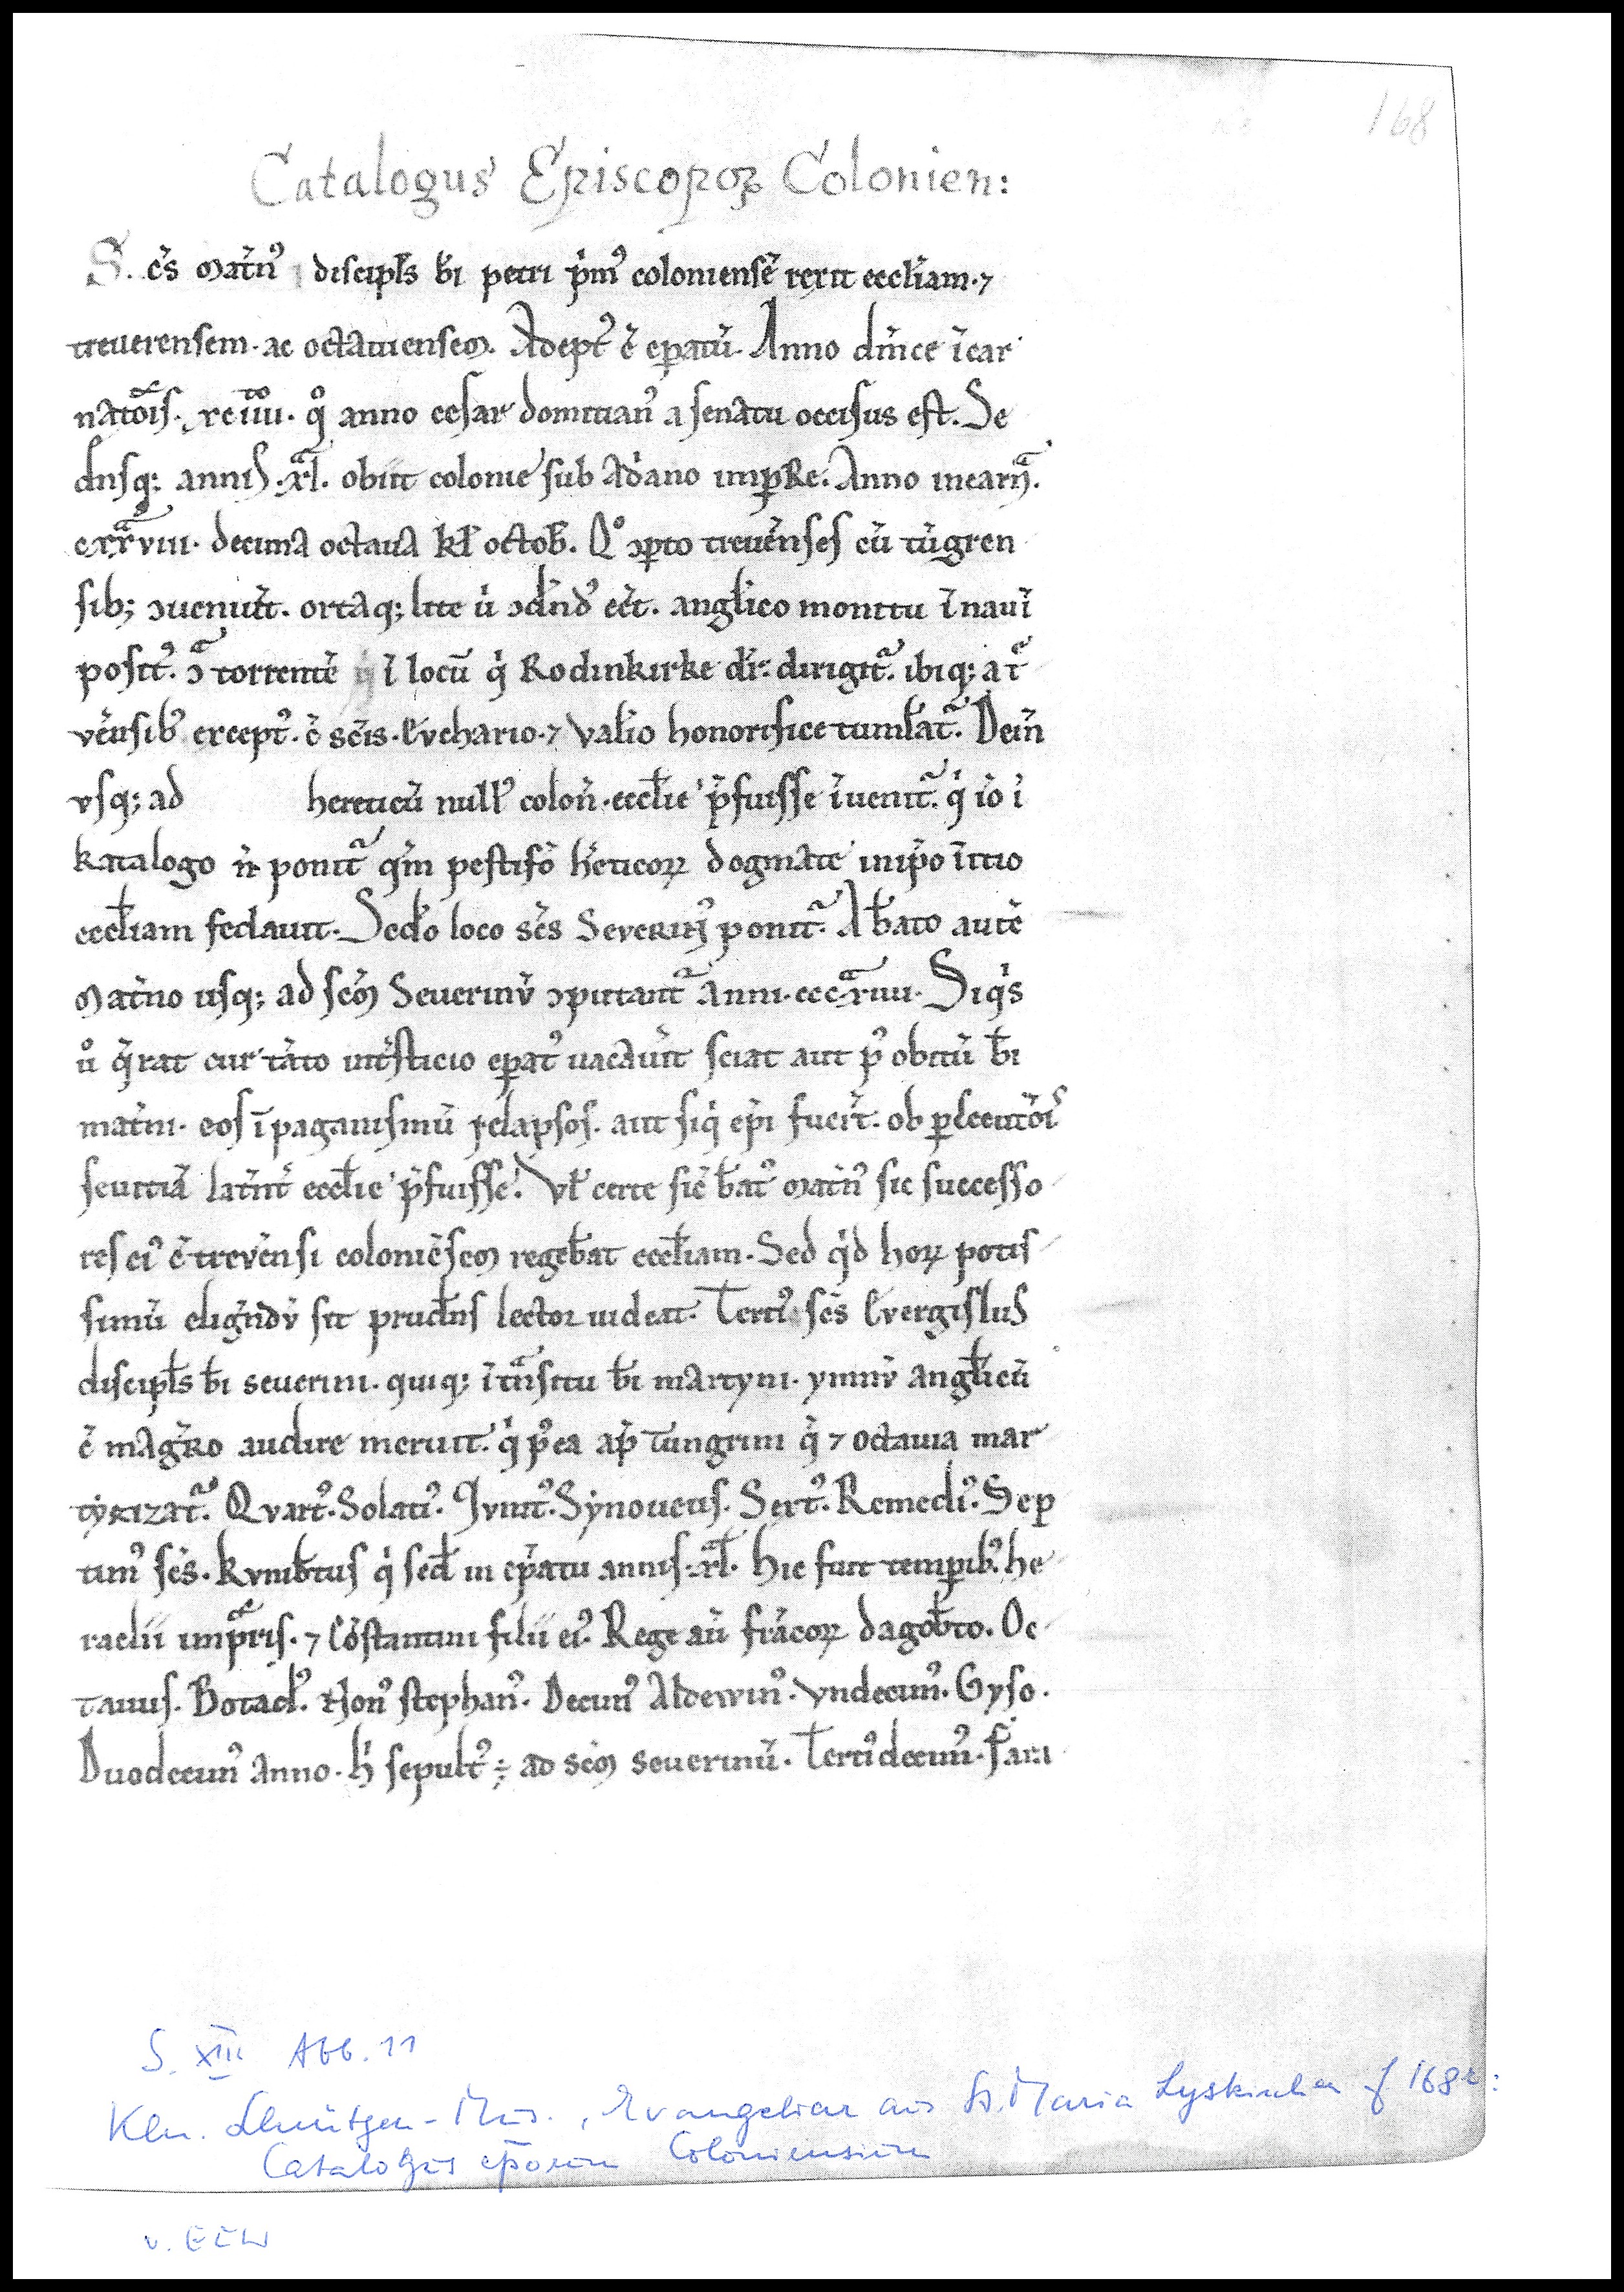 168
Catalogus Episcopoꝝ Colonien:
S. c̄s mat̄n᷒ discipl̄s b̄i petri p̄m᷒ coloniensē rexit eccl̄iam · ⁊
treuerensem · ac octauiensem. Adept᷒ ē ep̄atū. Anno dn̄ice īcar
natōis. xc iiii. q̊ anno cesar domitian᷒ a senatu occisus est. Se
dn̄sq; annis. xl. obiit colonie sub adͥano imꝑRe. Anno incarn̄.
cxxxviii. decima octaua kl̄ octob̄. Qº ↄꝑto treuēnses cū tūgren
sib; ↄuenūt. ortaq; lite u̇ ↄdn̄d᷒ eēt. angl̄ico monitu ī naui
posit᷒. ↄᷓ torrentē ī locū q̇ Rodinkirke dr̄: dirigit᷑. ibiq; a t
vēnsib᷒ except᷒. ē sc̄is. Evchario · ⁊ Valīo honorifice tuml̄at᷑. Dein̄
vsq; ad hereticū null᷒ colon̄. eccl̄ie p̄fuisse īuenit᷑. q̇ iō ī
katalogo n̄ ponit᷑ qm̄ pestifō h̄eticoꝝ dogmate imp̄o īitio
eccl̄iam fedauit. Secd̄o loco sc̄s Severin᷒ ponit᷑. A b̄ato autē
mat̄no usq; ad sc̄m Seuerinū ↄputant᷑ anni. ccc xiiii. Siq̇s
u̇º q̄rat cur tāto int̄sticio ep̄at᷒ uacauīt sciat aut p᷒ obitū b̄i
mat̄ni. eos ī paganismū relapsos. aut siq̇ ep̄i fuer̄t. ob ꝑsecutōis
seuitiā lat̄nt᷑ eccl̄ie p̄fuisse. Vl̄ certe sic b̄at᷒ mat̄n᷒ sic successo
res ei᷒ ē trevēnsi coloniēsem regeb̄at eccl̄iam. Sed q̇d hoꝝ potis
simū elign̄dū sit prudn̄s lector uideat. Terti᷒ sc̄s Evergislus
discipl̄s b̄i seuerini. quiq; ī tn̄situ b̄i martyni. ymnū angl̄icū
ē magr̄o audire meruit. q̇ p᷒ea ap̄ Tungrim q̇ ⁊ octauia mar
tyrizat᷑. Qvart᷒. Solati᷒. Qvint᷒. Synoueus. Sext᷒. Remedi᷒. Sep
tim᷒ sc̄s. Kvnib̄tus q̇ sed̄ in ep̄atu annis. xl. Hic fuit tempꝑib᷒. he
raclii imꝑr̄is. ⁊ Cōstantini filii ei᷒. Rege aū frācoꝝ dagob̄to. Oc
tauus. Botad᷒. Non᷒ stephan᷒. Decim᷒ Aldewin᷒. Vndecim᷒. Gyso.
Duodecim᷒ anno. h̄ sepult᷒ ÷ ad sc̄m seuerinū. Terti᷒decim᷒. Fāri
S. XIII Abb. 11
Kln. Schnütgen-Mus., Evangeliar aus St. Maria Lyskirchen f 168r:
Catalogus ep̄orum Coloniensium